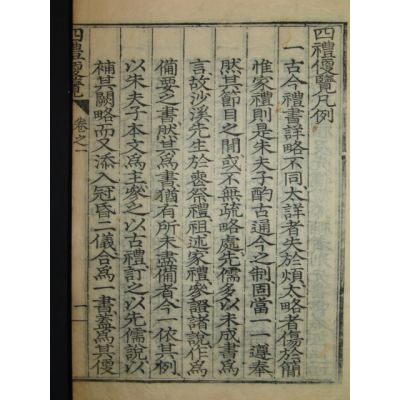 四禮便覽凡例
一古今禮書詳略不同太詳者失於煩太略者傷於簡
惟家禮則是朱夫子酌古通今之制固當一一遵奉
然其節目之間或不無疏略處先儒多以未成書爲
言故沙溪先生於喪祭禮祖述家禮參證諸說作爲
備要之書然其爲書猶有所未盡備者今一依其例
以朱夫子本文爲主參之以古禮訂之以先儒說以
補其闕略而又添入冠昏二儀合爲一書蓋爲其便
四禮便覽
卷之一
一